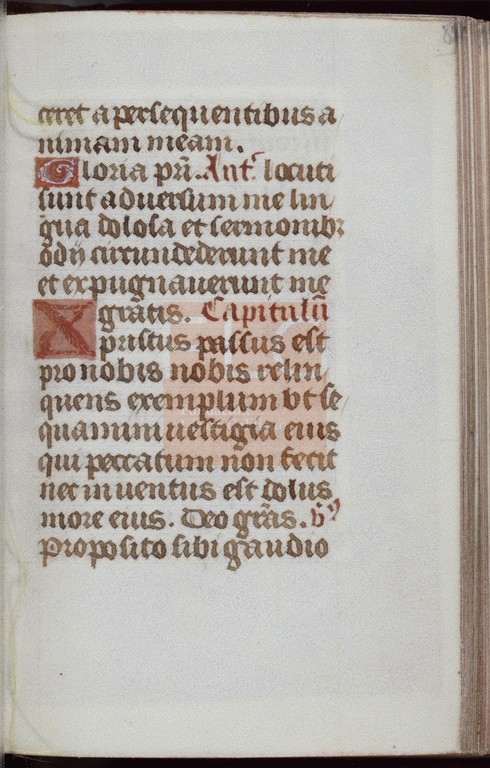 ceret a persequentibus a
nimam meam.
Gloria pr̃i. Antᵉ locuti
sunt aduersum me lin
gua dolosa et sermonibꝫ
odij circundederunt me
et expugnauerunt me
gratis. Capitulũ
Xpristus passus est
pro nobis nobis relin
quens exemplum vt se
quamini uestigia eius
qui peccatum non fecit
nec inuentus est dolus
in ore eius. Deo gr̃as.
Proposito sibi gaudio